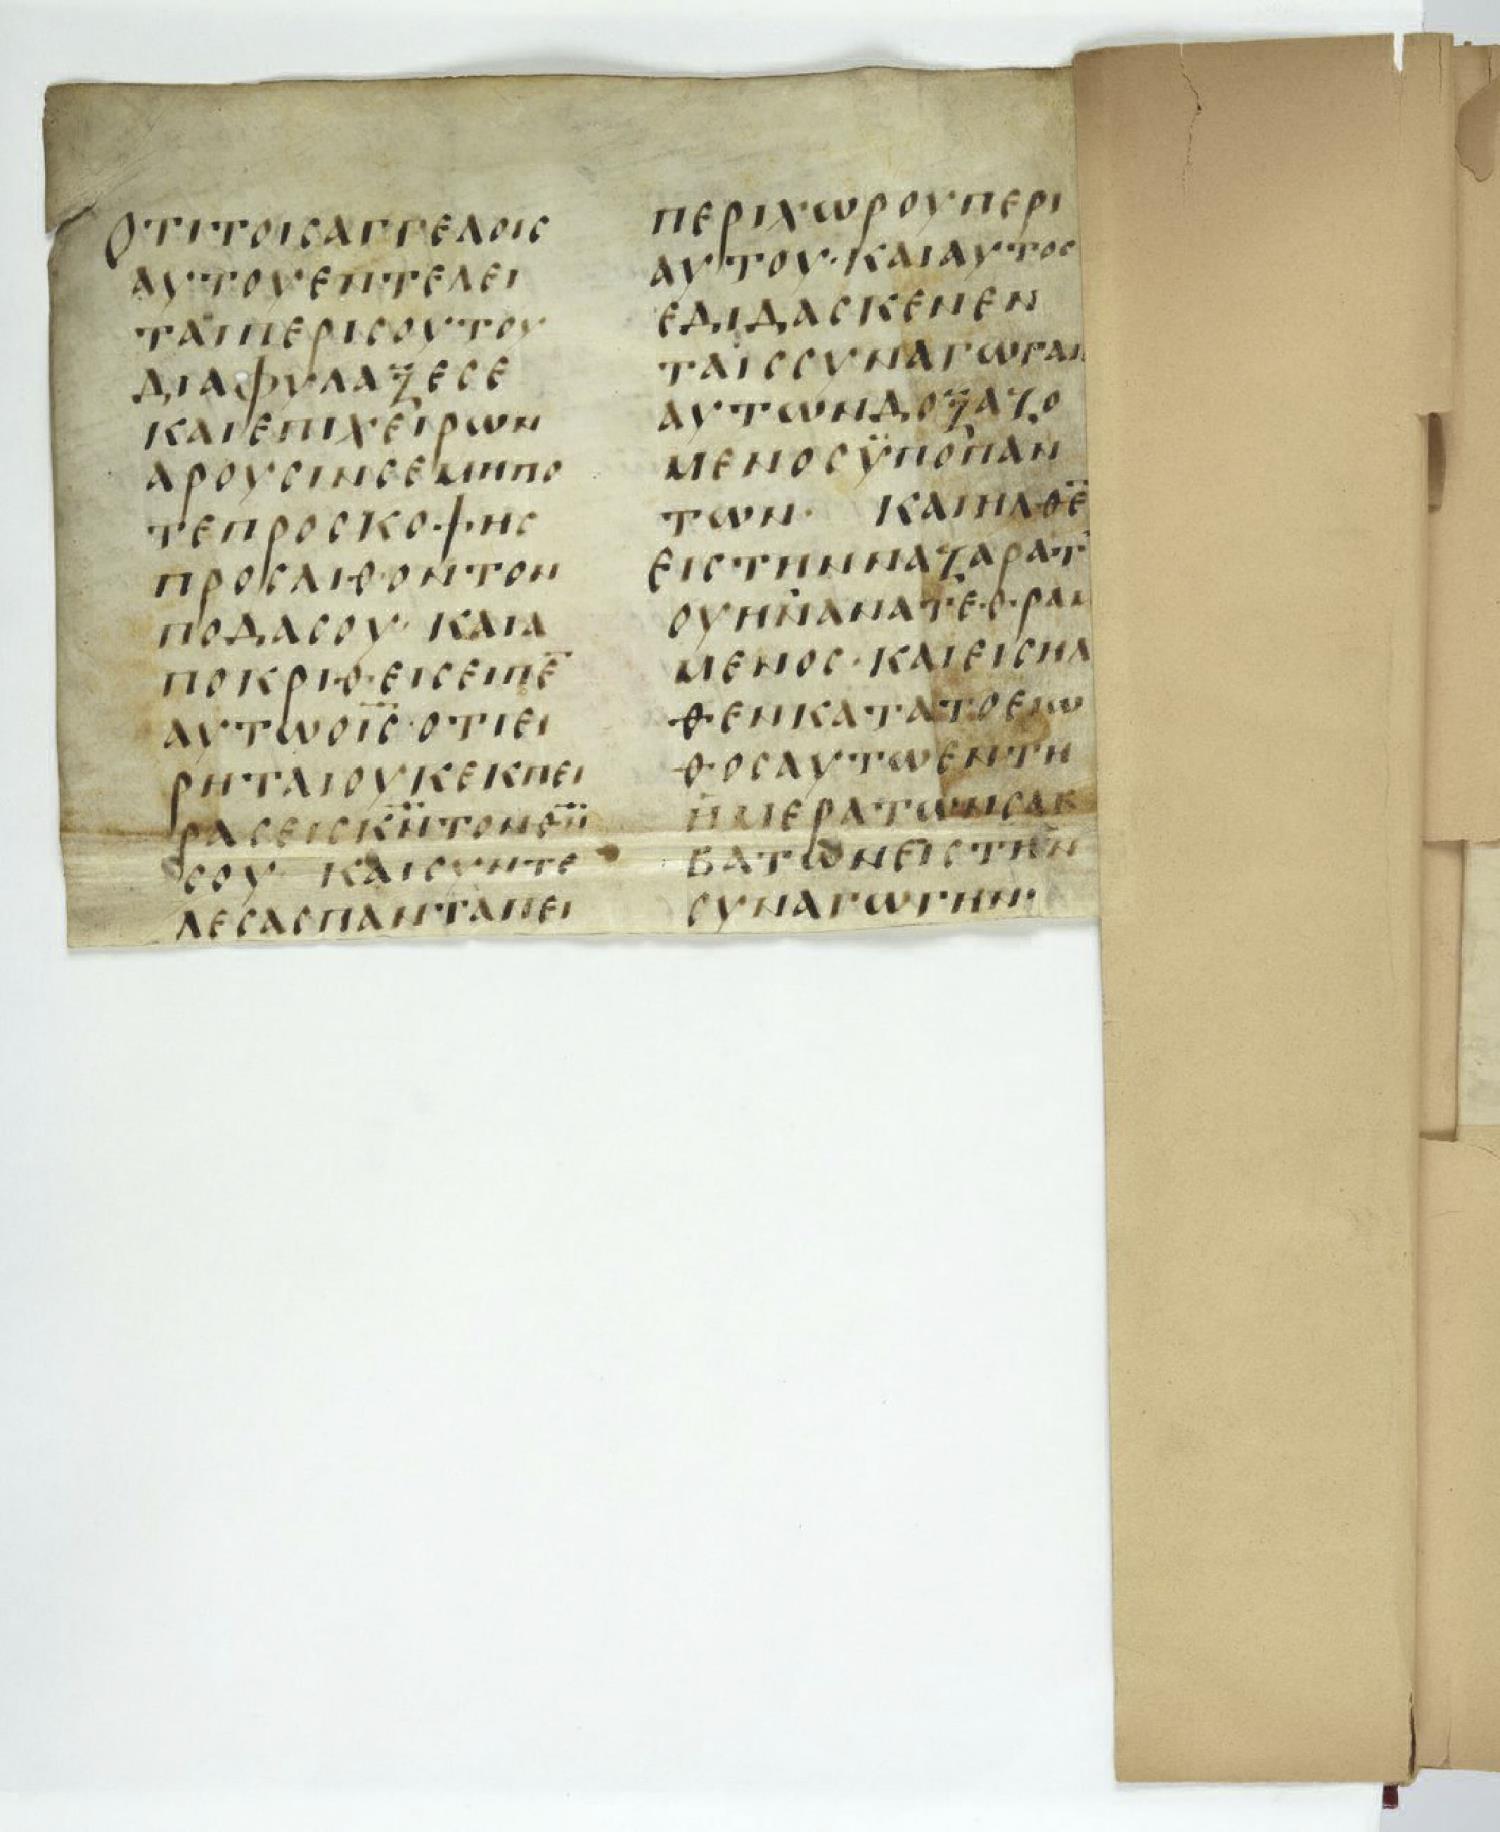 ΟΤΙΤΟΙCΑΓΓΕΛΟΙC
ΑΥΤΟΥΕΝΤΕΛΕΙ
ΤΑΙΠΕΡΙCΟΥΤΟΥ
ΔΙΑΦΥΛΑΞΕCΕ
ΚΑΙΕΠΙΧΕΙΡΩΝ
ΑΡΟΥCΙΝCΕΜΗΠΟ
ΤΕΠΡΟCΚΟΨΗC
ΠΡΟCΛΙΘΟΝΤΟΝ
ΠΟΔΑCΟΥ· ΚΑΙΑ
ΠΟΚΡΙΘΕΙCΕΙΠΕ̅
ΑΥΤΩΟΙ̅C̅·ΟΤΙΕΙ
ΡΗΤΑΙΟΥΚΕΚΠΕΙ
ΡΑCΕΙCΚ̅Ν̅ΤΟΝΘ̅Ν̅
CΟΥ ΚΑΙCΥΝΤΕ
ΛΕCΑCΠΑΝΤΑΠΕΙ
ΠΕΡΙΧΩΡΟΥΠΕΡΙ
ΑΥΤΟΥ·ΚΑΙΑΥΤΟC
ΕΔΙΔΑCΚΕΝΕΝ
ΤΑΙCCΥΝΑΓΩΓΑΙ
ΑΥΤΩΝΔΟΞΑΖΟ
ΜΕΝΟCΫΠΟΠΑΝ
ΤΩΝ· ΚΑΙΗΛΘΕ̅
ΕΙCΤΗΝΝΑΖΑΡΑΤ
ΟΥΗΝΑΝΑΤΕΘΡΑΜ
ΜΕΝΟC·ΚΑΙΕΙCΗΛ
ΘΕΝΚΑΤΑΤΟΕΙΩ
ΘΟCΑΥΤΩΕΝΤΗ
ΗΜΕΡΑΤΩΝCΑΒ
ΒΑΤΩΝΕΙCΤΗΝ
CΥΝΑΓΩΓΗΝ·